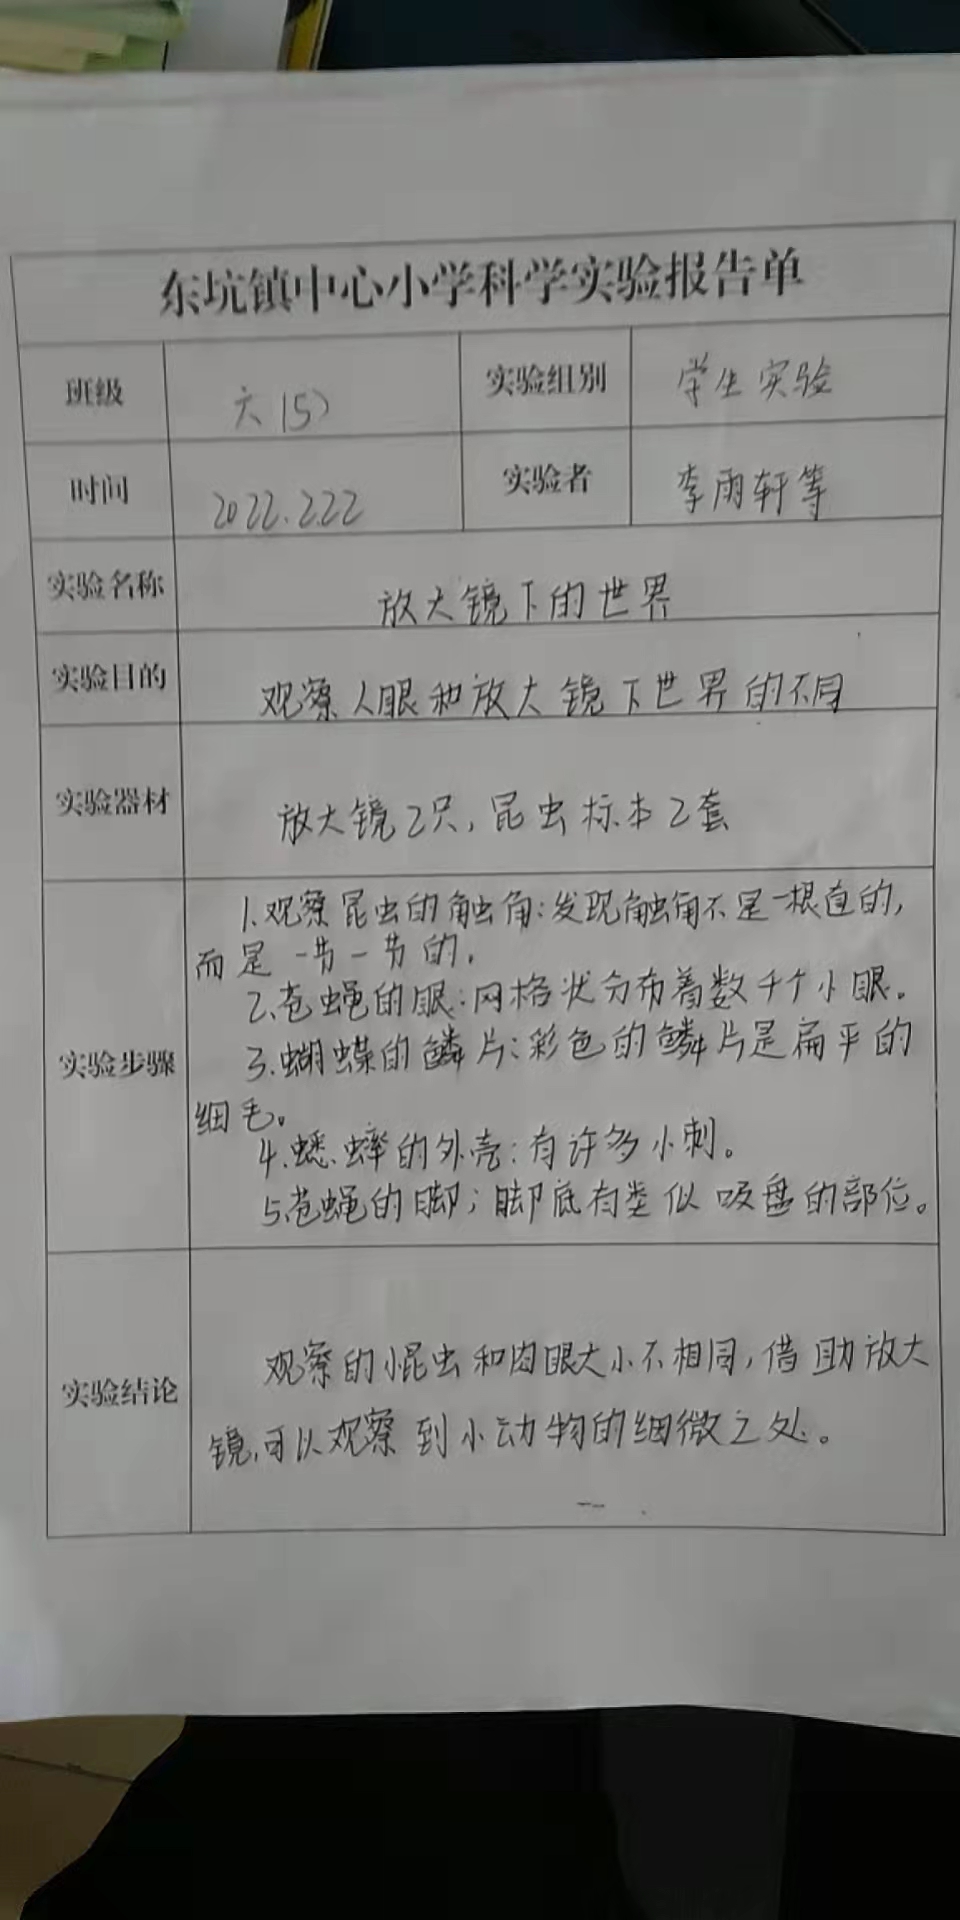 东坑镇中心小学科学实验报告单
班级 六(5) 实验组别 学生实验
时间 2022.2.22 实验者 李雨轩等
实验名称 放大镜下的世界
实验目的 观察人眼和放大镜下世界的不同
实验器材 放大镜2只,昆虫标本2套
实验步骤
1.观察昆虫的触角:发现触角不是一根直的,
而是一节一节的.
2.苍蝇的眼:网格状分布着数千个小眼.
3.蝴蝶的鳞片:彩色的鳞片是扁平的
细毛。
4.蟋蟀的外壳:有许多小刺。
5.苍蝇的脚;脚底有类似吸盘的部位。
实验结论
观察的昆虫和肉眼大小不相同,借助放大
镜,可以观察到小动物的细微之处。